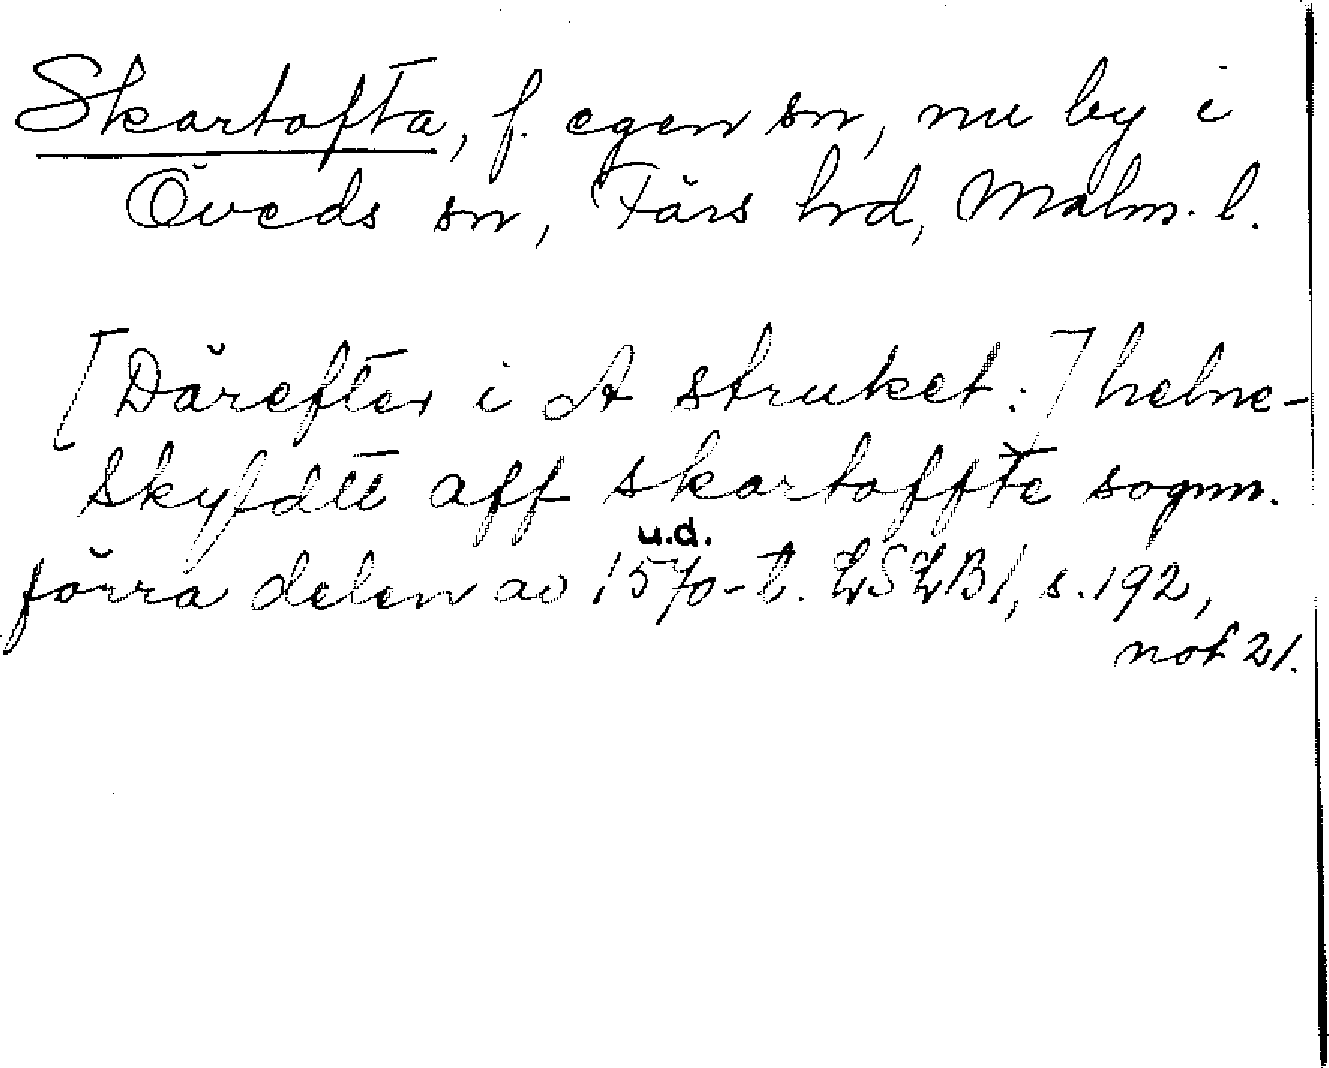 Skartofta, f. egen sn, nu by i
Öveds sn, Färs hrd, Malm. l.
[Därefter i A struket:] helne-
skyldtt aff skartoffte sognn.
u.d.
förra delen av 1570-t. LSLB1, s. 192,
not 21.